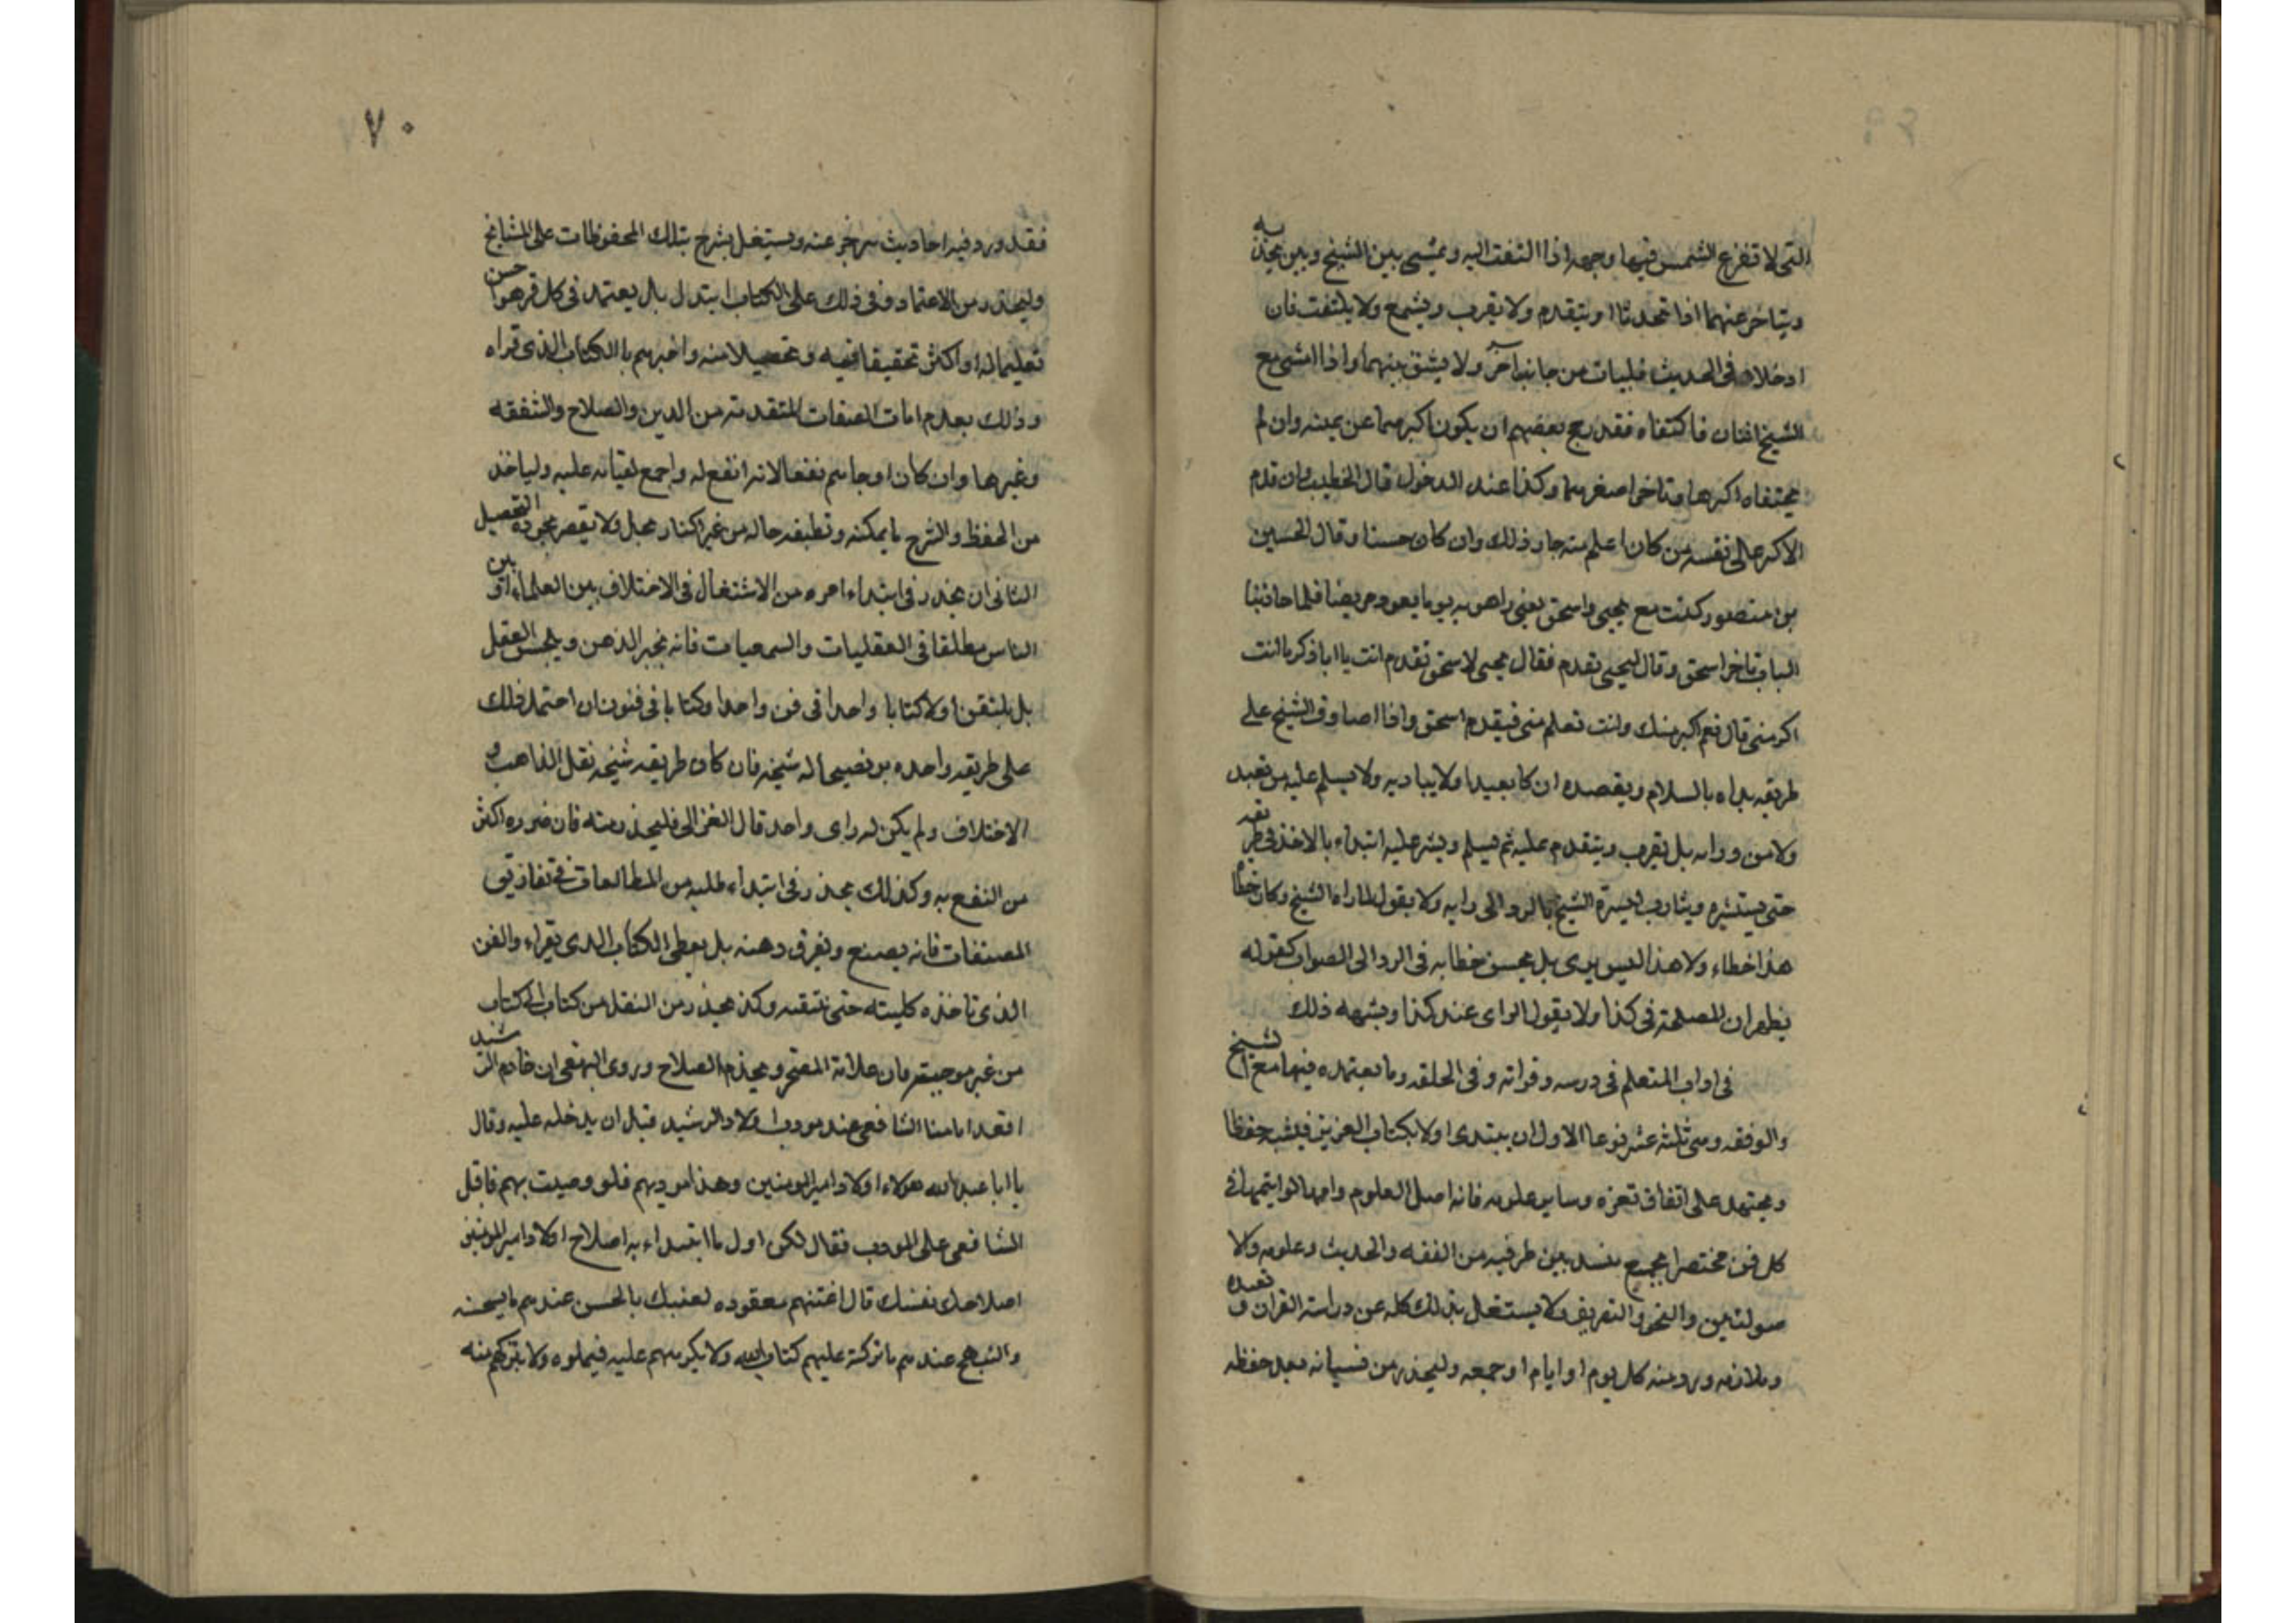 التي لا تفزع الشمس فيها وجهه اذا التفت اليه ويمشي بين الشيخ وبين يحذيه
ويتاخر عنهما اذا تحدثا او يتقدم ولا يقرب ويشمع ولا يلتفت فان
ادخلاه في الحديث فليات من جانب اخر ولا يشق بينهما واذا امشى مع
الشيخ اثنان فاكتفاه فقد رجح بعضهم ان يكون اكبرهما عن يمينه وان لم
يكتفاه اكبرهما وتاخر اصغرهما وكذا عند الدخول قال الخطيب وان قدم
الاكبر على نفسه من كان اعلم منه جاز ذلك وان كان حسنا وقال الحسين
بن منصور كنت مع يحيى واسحق يعني راهويه يوما يعود مريضا فلما حاذينا
الباب تاخر اسحق وقال ليحيى تقدم فقال يحيى لاسحق تقدم انت يا ابا ذكريا انت
اكبر مني قال نعم اكبر منك وانت تعلم مني فيقدم اسحق واذا صادف الشيخ على
طريقه بداه بالسلام ويقصده ان كا بعيدا ولا يباديه ولا يسلم عليه من بعيد
ولا من ورايه بل يقرب ويتقدم عليه ثم يسلم ويشر عليه ابتداء بالاخذ في طريقه
حتى يستشره ويتادب الشيخ بالرد الى رايه ولا يقول لما راه الشيخ وكان خطأ
هذا خطاء ولا هذا ليس براى بل يحسن خطابه في الرد الى الصواب كقوله
يظهر ان المصلحة في كذا ولا يقول الراى عندى كذا ويشبهه ذلك
في اداب المتعلم في درسه وقراته وفي الحلقه وما يعتمده فيها مع الشيخ
والرفقه وهي ثلثه عشر نوعا الاول ان يبتدى اولا بكتاب العزيز فيثبه حفظا
ويجتهد على اتقان تفسره وساير علومه فانه اصل العلوم وامها
كل فن مختصرا يجمع بين طرفيه من الفقه والحديث وعلومه ولا
صولين والنحو والتصريف ولا يستغل بذلك كله عن دراسة القران وتعهده
وملازمه ورد منه كل يوم او ايام او جمعه وليحذر من نسيانه بعد حفظه
٧٠
فقد ورد فيه احاديث تزجر عنه ويستغل بشرح تلك المحفوظات على المشايخ
وليحذر من الاعتماد في ذلك على الكتاب ابتدا بل يعتمد في كل فن من هو احسن
تعليما له او اكثر تحقيقا فيه وتحصيلا منه واخبرهم بالكتاب الذي قراه
وذلك بعد مراعات الصفات المتقدمه من الدين والصلاح والشفقه
وغيرها وان كان نفعا لانه انفع له واجمع عليه ولياخذ
من الحفظ والشرح ما يمكنه وتطيقه حاله من غير اكثار يمل ولا تقصير بجودة التحصيل
الثاني ان يحذر في ابتداء امره من الاشتغال في الاختلاف بين العلماء او بين
الناس مطلقا في العقليات والسمعيات فانه يحير الذهن ويدهش العقل
بل يتقن اولا كتابا واحدا في فن واحد او كتابا في فنون ان احتمل ذلك
على طريقه واحده يرتضيها له شيخه فان كان طريقه شيخه نقل المذاهب و
الاختلاف ولم يكن له راى واحد قال الغزالي فليحذر منه فان ضرره اكثر
من النفع به وكذلك يحذر في ابتداء طلبه من المطالعات في تفاريق
المصنفات فانه يضيع ويفرق ذهنه بل يعطي الكتاب الذي يقراء والفن
الذي تاخذه كليته حتى يتقنه وكذا يحذر من النقل من كتاب الى كتاب
من غير موجب فان علامة الضجر وعدم الصلاح وروى البيهقي ان خادم الرشيد
اقعد امامنا الشافعي عند مودب اولاد الرشيد قبل ان يدخله عليه وقال
يا ابا عبد الله هولاء اولاد امير المومنين وهذا مودبهم فلو وصيت بهم فاقبل
الشافعي على المودب فقال لكن اول ما ابتداء به اصلاح اولاد امير المومنين
اصلاحك نفسك قال اعينهم معقوده بعينك بالحسن عندهم ما يستحسنه
والقبيح عندهم ما تركته عليهم كتاب الله ولا يكرههم عليه فيملوه ولا يتركهم منه